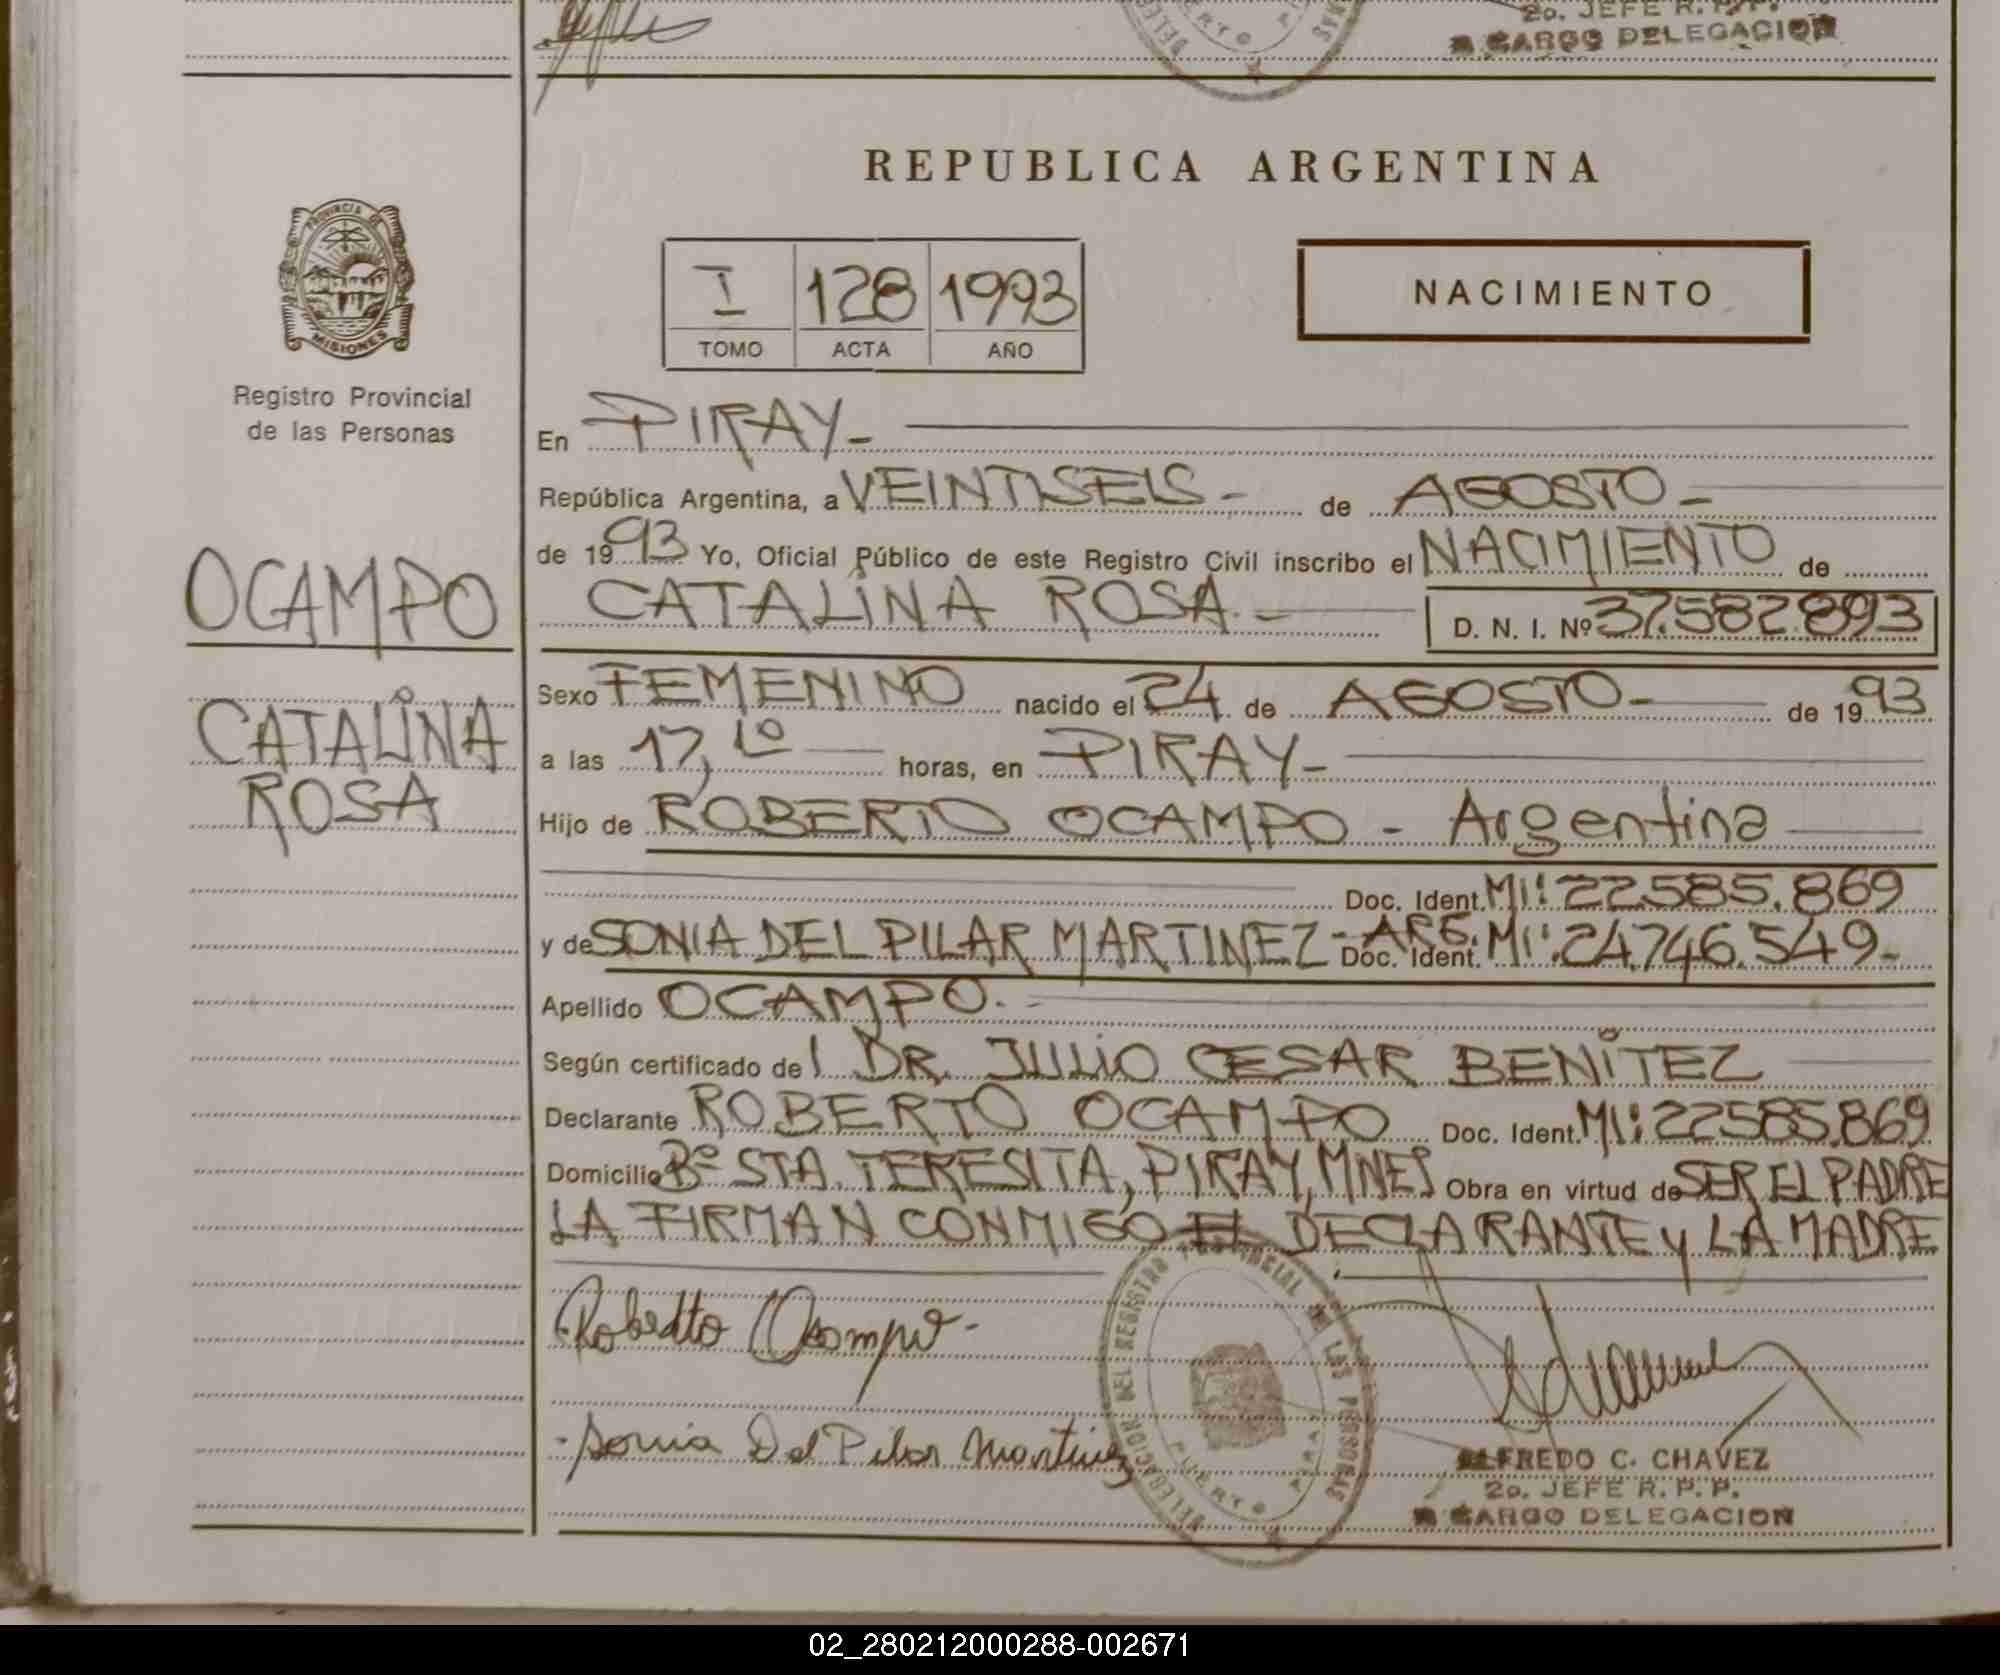 2o. JEFE R. P. P.
A CARGO DELEGACION
REPUBLICA ARGENTINA
PROVINCIA DE
MISIONES
Registro Provincial
de las Personas
I 128 1993
TOMO ACTA AÑO
NACIMIENTO
OCAMPO
CATALINA
ROSA
En PIRAY-
República Argentina, a VEINTISEIS- de AGOSTO-
de 1993 Yo, Oficial Público de este Registro Civil inscribo el NACIMIENTO de
CATALINA ROSA.- D. N. I. Nº 37.582.893
Sexo FEMENINO nacido el 24 de AGOSTO- de 1993
a las 17,10 horas, en PIRAY-
Hijo de ROBERTO OCAMPO - Argentina
Doc. Ident. MI: 22.585.869
y de SONIA DEL PILAR MARTINEZ - ARG. Doc. Ident. MI: 24.746.549-
Apellido OCAMPO.-
Según certificado de l DR. JULIO CESAR BENITEZ
Declarante ROBERTO OCAMPO Doc. Ident. MI: 22585.869
Domicilio Bº STA. TERESITA, PIRAY, MNES Obra en virtud de SER EL PADRE
LA FIRMAN CONMIGO EL DECLARANTE y LA MADRE
Roberto Ocampo-
Sonia Del Pilar Martinez
DELEGACION DEL REGISTRO PROVINCIAL DE LAS PERSONAS
PUERTO PIRAY
ALFREDO C. CHAVEZ
2o. JEFE R. P. P.
A CARGO DELEGACION
02_280212000288-002671